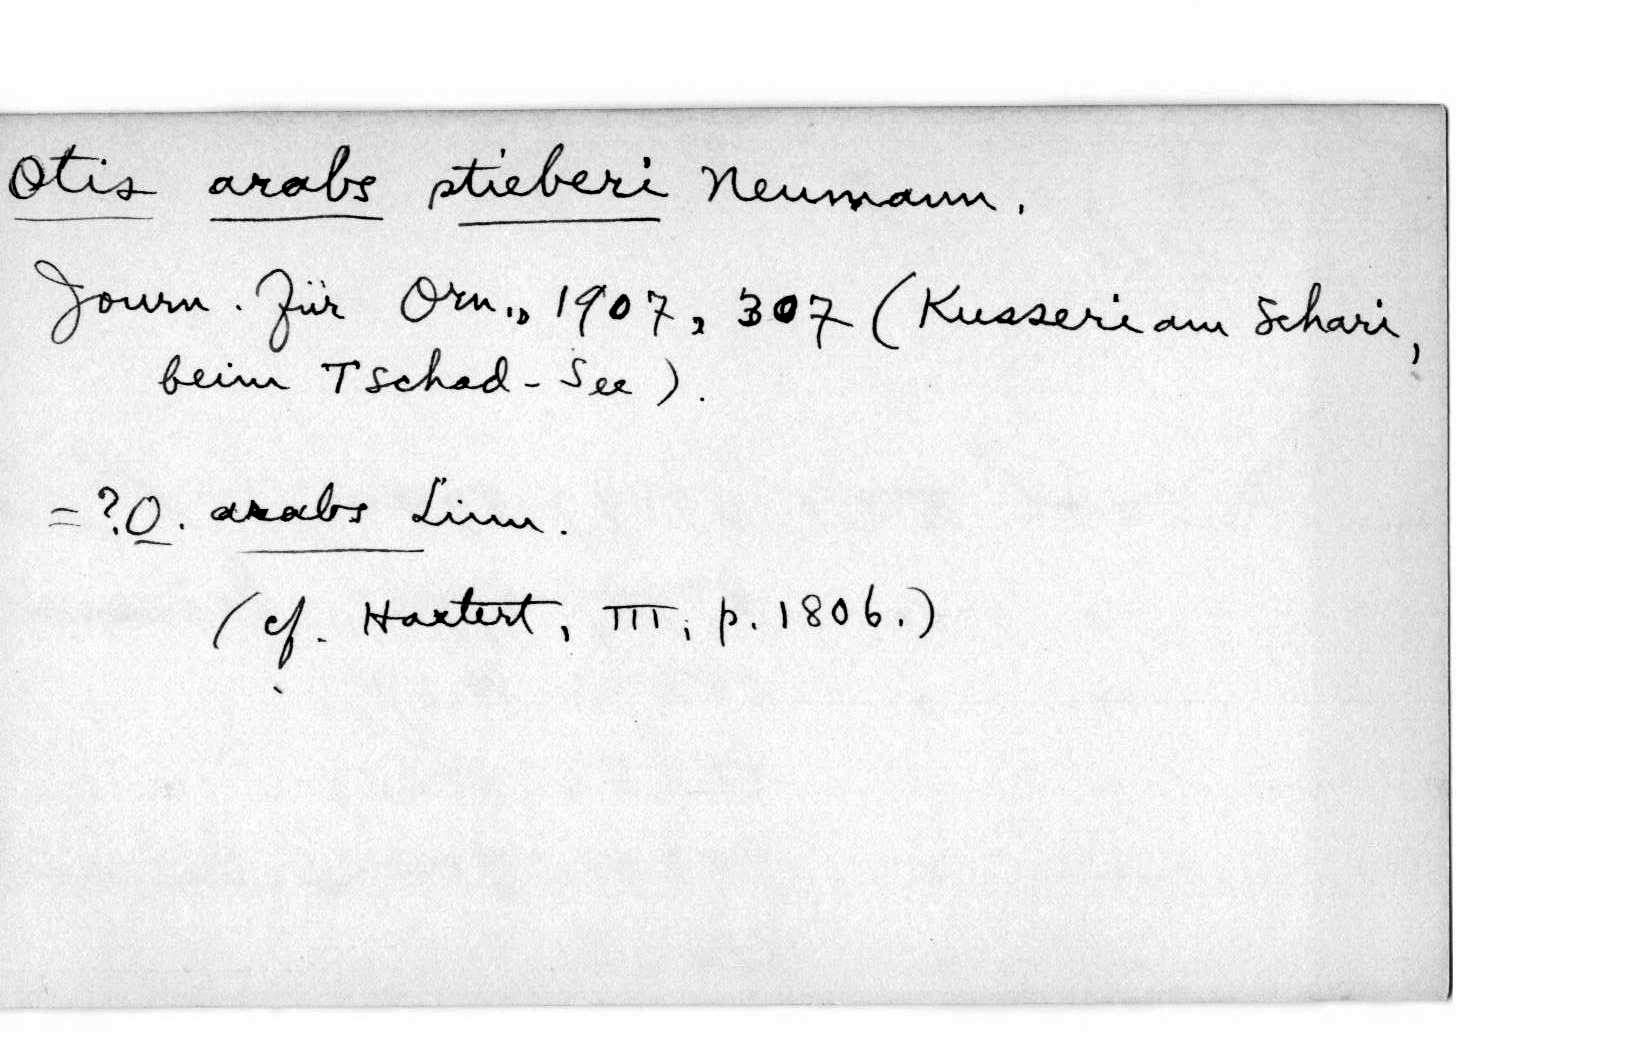 Otis arabs stieberi Neumann.
Journ. für Orn., 1907, 307 (Kusseri am Schari,
beim Tschad-See).
=?O. arabs Linn.
(cf. Hartert, III, p. 1806.)